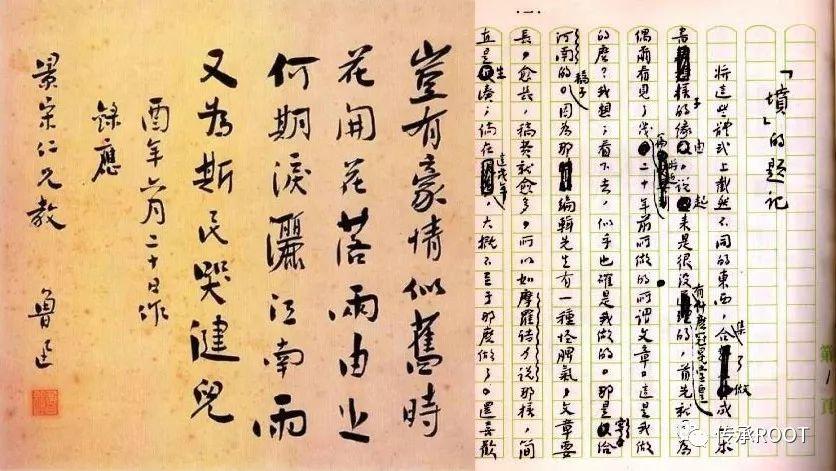 豈有豪情似舊時
花開花落兩由之
何期淚灑江南雨
又為斯民哭健兒
酉年六月二十日作
錄應
景宋仁兄教
魯迅
「墳」的題記
將這些體式上截然不同的東西,合集了做成一本
書樣子的緣由,說起來是很沒有什麼冠冕堂皇的,首先就因為
偶爾看見了幾篇將近二十年前所做的所謂文章。這是我做
的麼?我想;看下去,似乎也確是我做的。那是寄給
河南的稿子;因為那編輯先生有一種怪脾氣,文章要
長,愈長,稿費就愈多。所以如摩羅詩力說那樣,簡
直是生湊;倘在這幾年,大概不至于那麼做了。還喜歡
第1頁
传承ROOT